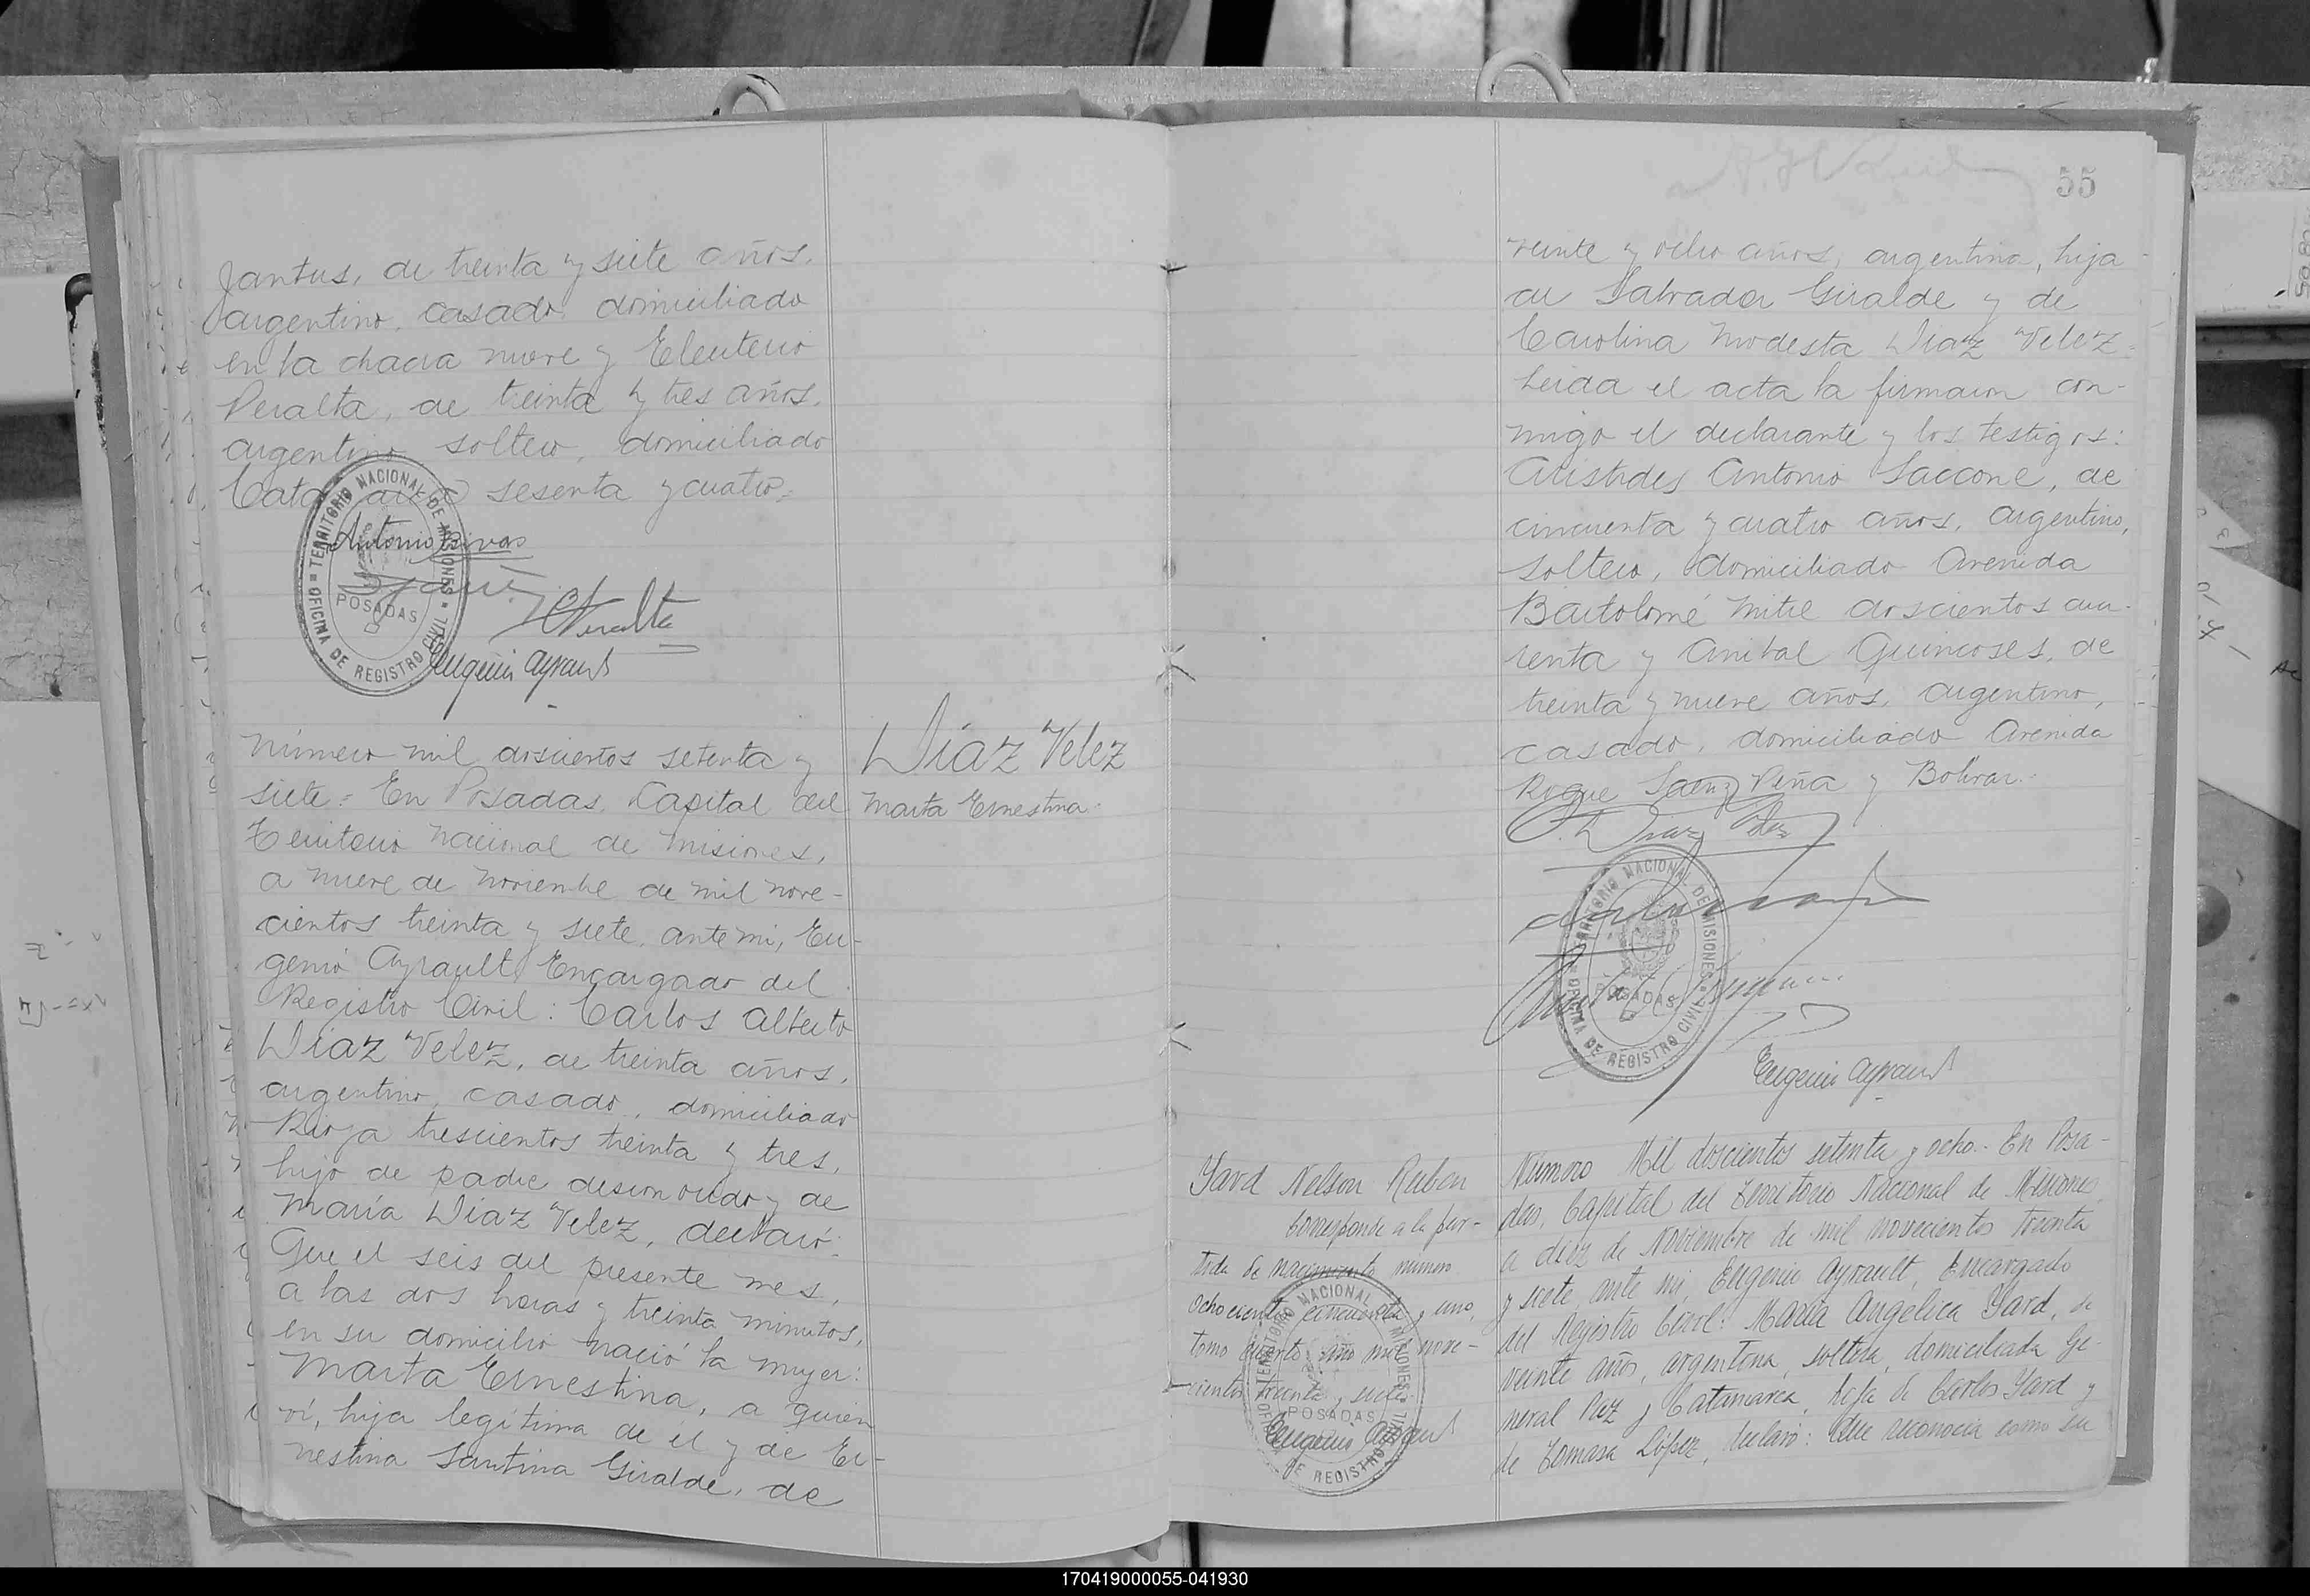 Jantus, de treinta y siete años,
argentino, casado, domiciliado
en la chacra nueve y Eleuterio
Peralta, de treinta y tres años,
argentino, soltero, domiciliado
sesenta y cuatro.=
TERRITORIO NACIONAL DE MISIONES
POSADAS
OFICINA DE REGISTRO CIVIL
Antonio Rivas
Peralta
Eugenio Ayrault
Número mil doscientos setenta y
siete= En Posadas, Capital del
Territorio Nacional de Misiones,
a nueve de noviembre de mil nove-
cientos treinta y siete, ante mi, Eu-
genio Ayrault, Encargado del
Registro Civil: Carlos Alberto
Diaz Velez, de treinta años,
argentino, casado, domiciliado
Rioja trescientos treinta y tres,
hijo de padre desconocido y de
María Diaz Velez, declaró:
Que el seis del presente mes,
a las dos horas y treinta minutos,
en su domicilio nació la mujer:
Marta Ernestina, a quien
ví, hija legítima de él y de Er-
nestina Santina Giralde, de
Diaz Velez
Marta Ernestina.
55
veinte y ocho años, argentina, hija
de Salvador Giralde y de
Carolina Modesta Diaz Velez=
Leida el acta la firmaron con-
migo el declarante y los testigos:
Aristides Antonio Saccone, de
cincuenta y cuatro años, argentino,
soltero, domiciliado Avenida
Bartolomé Mitre doscientos cua-
renta y Anibal Quincoses, de
treinta y nueve años, argentino,
casado, domiciliado Avenida
Roque Saenz Peña y Bolivar.-
C. Diaz Velez
TERRITORIO NACIONAL DE MISIONES
POSADAS
OFICINA DE REGISTRO CIVIL
Eugenio Ayrault
Yard Nelson Ruben
Corresponde a la par-
tida de nacimiento numero
ochocientos cincuenta y uno,
tomo cuarto año mil nove-
cientos treinta y siete
Eugenio Ayrault
TERRITORIO NACIONAL DE MISIONES
POSADAS
OFICINA DE REGISTRO CIVIL
Número Mil doscientos setenta y ocho.- En Posa-
das, Capital del Territorio Nacional de Misiones,
a diez de Noviembre de mil novecientos treinta
y siete ante mi, Eugenio Ayrault, Encargado
del Registro Civil: María Angélica Yard, de
veinte años, argentina, soltera, domiciliada Ge-
neral Paz y Catamarca, hija de Carlos Yard y
de Tomasa López, declaró: Que reconocia como su
170419000055-041930